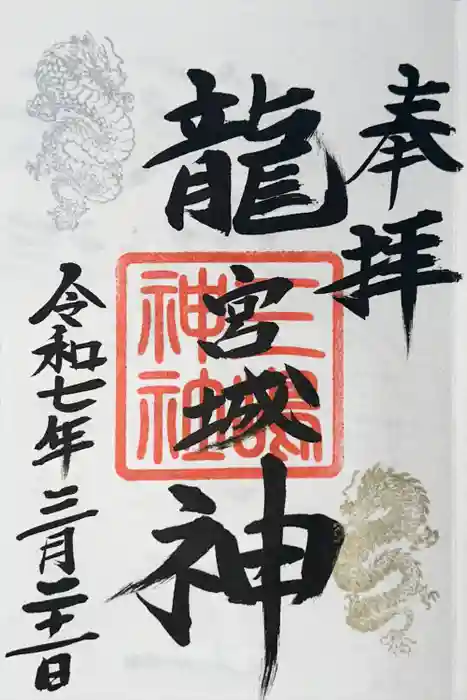 奉拝
龍宮城神
三島
神社
令和七年三月二十一日